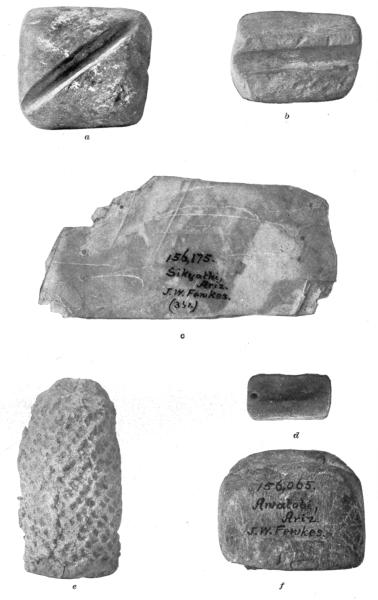 a
b
156,175.
Sikyatki,
Ariz.
J.W. Fewkes.
(3½)
c
d
156,065.
Awatobi,
Ariz.
J.W. Fewkes.
e
f